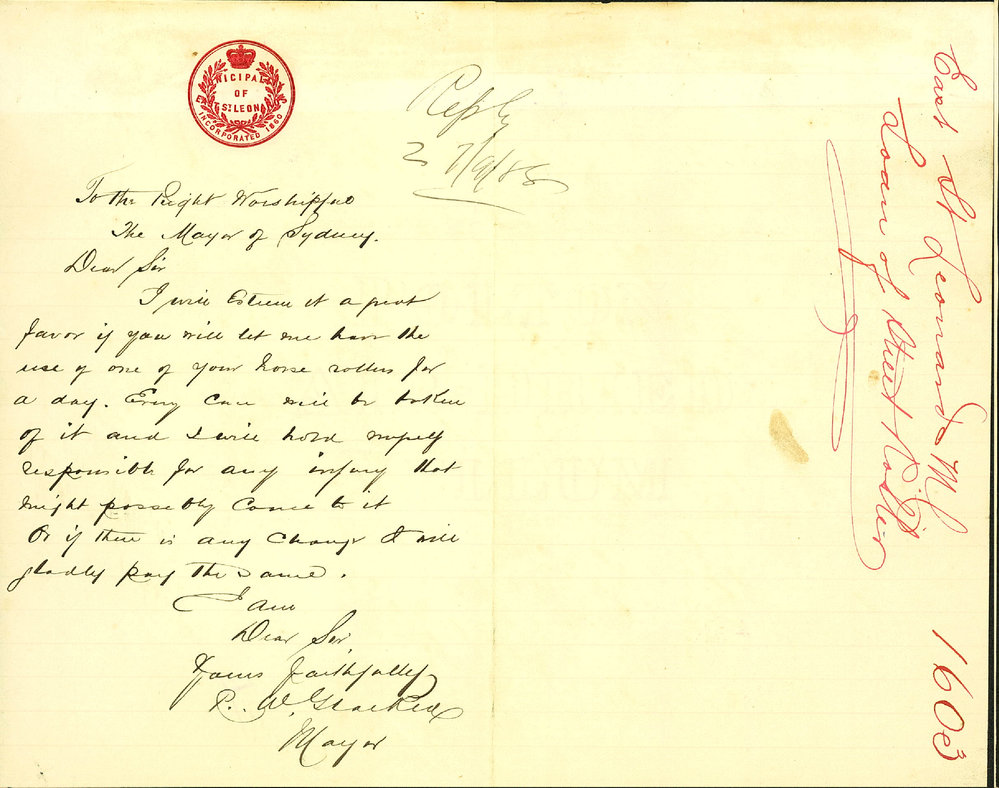 NICIPAL
OF
ST LEON
INCORPORATED 1860
Reply
2 7/9/88
To the Right Worshipful
The Mayor of Sydney.
Dear Sir
I will Esteem it a great
favor if you will let me have the
use of one of your horse rollers for
a day. Every Care will be taken
of it and I will hold myself
responsible for any injury that
might possibly Come to it
Or if there is any Charge I will
gladly pay the same.
I am
Dear Sir
Yours faithfully
P. W.
Mayor
East St Leonards M.C
Loan of Street Roller
1603